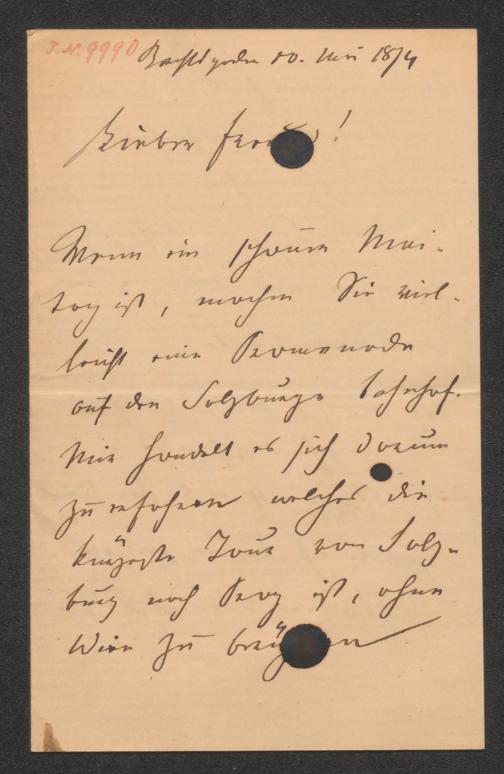 I.N. 9990
Berchtesgaden 10. Mai 1874
Lieber Freund!
Wenn ein schöner Mai-
tag ist, machen Sie viel-
leicht eine Promenade
auf den Salzburger Bahnhof.
Mir handelt es sich darum
zu erfahren welches die
kürzeste Tour von Salz-
burg nach Prag ist, ohne
Wien zu